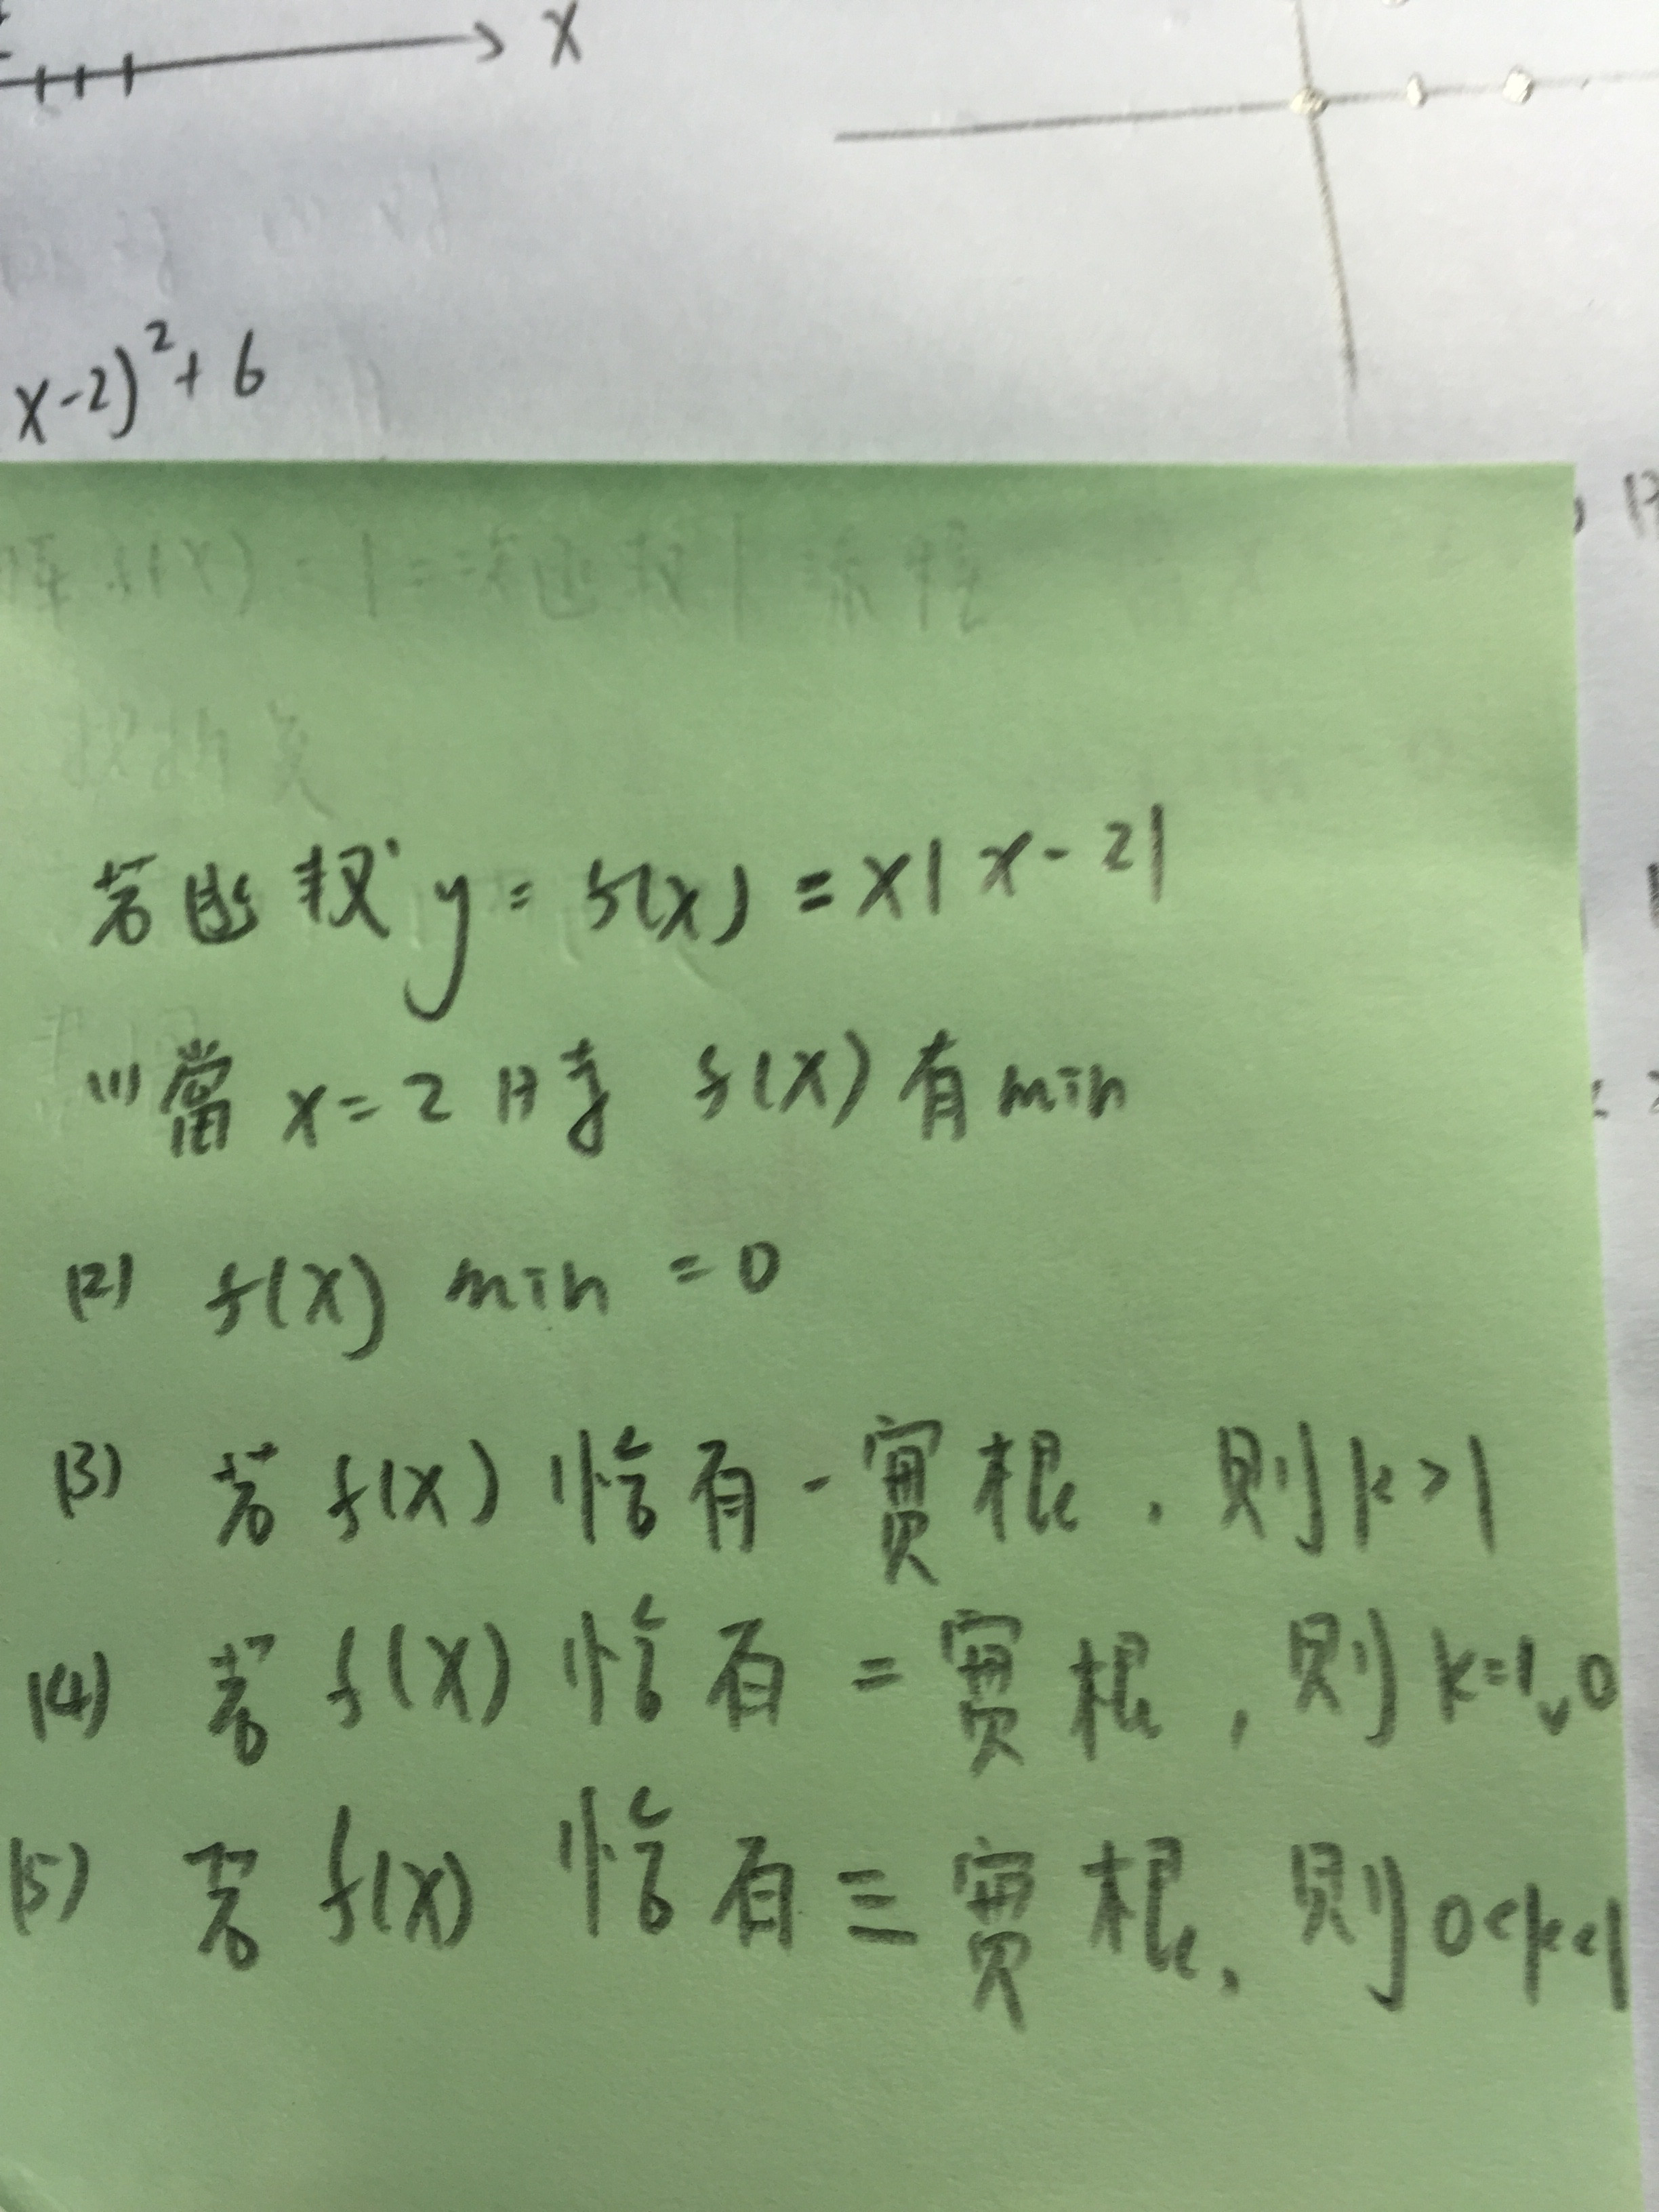 x
x-2)²+6
若函数 y = f(x) = x|x-2|
(1) 當 x=2 时 f(x) 有 min
(2) f(x) min = 0
(3) 若 f(x) 恰有一實根, 則 k>1
(4) 若 f(x) 恰有二實根, 則 k=1, 0
(5) 若 f(x) 恰有三實根, 則 0<k<1